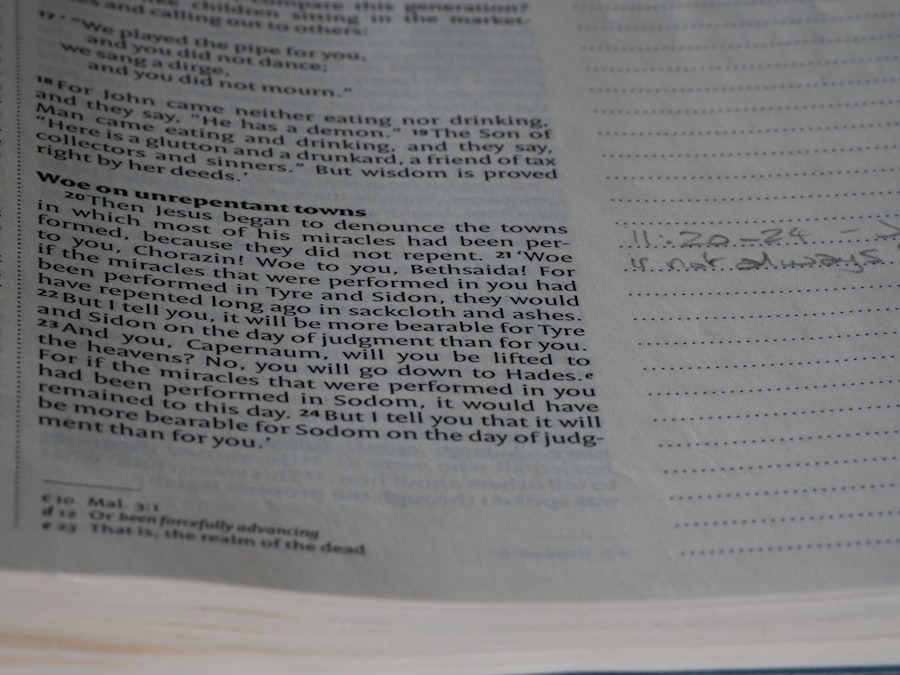 compare this generation?
like children sitting in the market-
and calling out to others:
17 ‘ “We played the pipe for you,
and you did not dance;
we sang a dirge,
and you did not mourn.”
18 For John came neither eating nor drinking,
and they say, “He has a demon.” 19 The Son of
Man came eating and drinking, and they say,
“Here is a glutton and a drunkard, a friend of tax
collectors and sinners.” But wisdom is proved
right by her deeds.’
Woe on unrepentant towns
20 Then Jesus began to denounce the towns
in which most of his miracles had been per-
formed, because they did not repent. 21 ‘Woe
to you, Chorazin! Woe to you, Bethsaida! For
if the miracles that were performed in you had
been performed in Tyre and Sidon, they would
have repented long ago in sackcloth and ashes.
22 But I tell you, it will be more bearable for Tyre
and Sidon on the day of judgment than for you.
23 And you, Capernaum, will you be lifted to
the heavens? No, you will go down to Hades.e
For if the miracles that were performed in you
had been performed in Sodom, it would have
remained to this day. 24 But I tell you that it will
be more bearable for Sodom on the day of judg-
ment than for you.’
c 10 Mal. 3:1
d 12 Or been forcefully advancing
e 23 That is, the realm of the dead
11:20-24 -
is not always